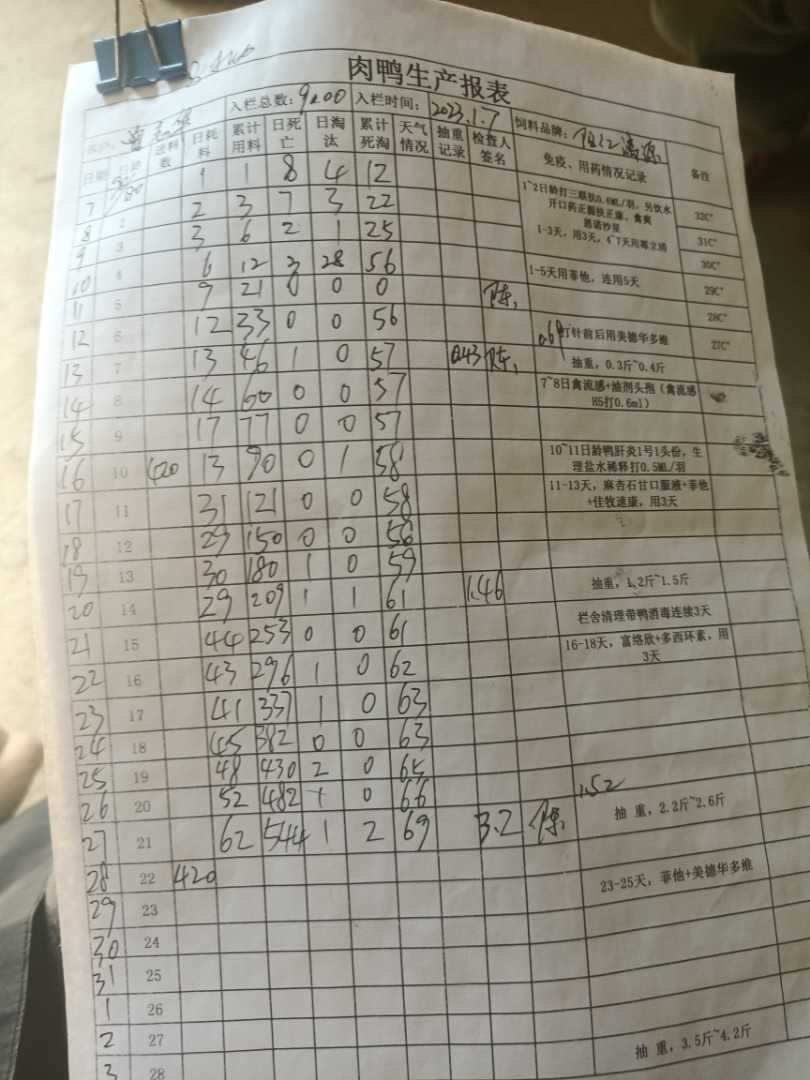 肉鸭生产报表
入栏总数: 9200 入栏时间: 2023.1.7 饲料品牌:
日期 日龄 送料数 日耗料 累计用料 日死亡 日淘汰 累计死淘 天气情况 抽重记录 检查人签名 免疫、用药情况记录 备注
7 1 1 8 4 12 1~2日龄打三联抗0.6ML/羽，另饮水
8 2 2 3 7 3 22 32C°
9 3 3 6 2 1 25 1-3天，用3天，4~7天用 31C°
10 4 6 12 3 28 56 30C°
11 5 9 21 0 0 0 陈 1-5天用菲他，连用5天 29C°
12 6 12 33 0 0 56 28C°
13 7 13 46 1 0 57 0.43 陈 打针前后用美德华多维 27C°
抽重，0.3斤~0.4斤
14 8 14 60 0 0 57 7~8日禽流感+油剂头孢（禽流感H5打0.6ml）
15 9 17 77 0 0 57
16 10 420 13 90 0 1 58 10~11日龄鸭肝炎1号1头份，生理盐水稀释打0.5ML/羽
17 11 31 121 0 0 58 11-13天，麻杏石甘口服液+菲他+佳牧速康，用3天
18 12 29 150 0 0 58
19 13 30 180 1 0 59
20 14 29 209 1 1 61 1.46 抽重，1.2斤~1.5斤
21 15 44 253 0 0 61 栏舍清理带鸭消毒连续3天
22 16 43 296 1 0 62 16-18天，富络欣+多西环素，用3天
23 17 41 337 1 0 63
24 18 45 382 0 0 63
25 19 48 430 2 0 65
26 20 52 482 1 0 66
27 21 62 544 1 2 69 3.2 陈 抽 重，2.2斤~2.6斤
28 22 420
29 23 23-25天，菲他+美德华多维
30 24
31 25
1 26
2 27
3 28 抽 重，3.5斤~4.2斤